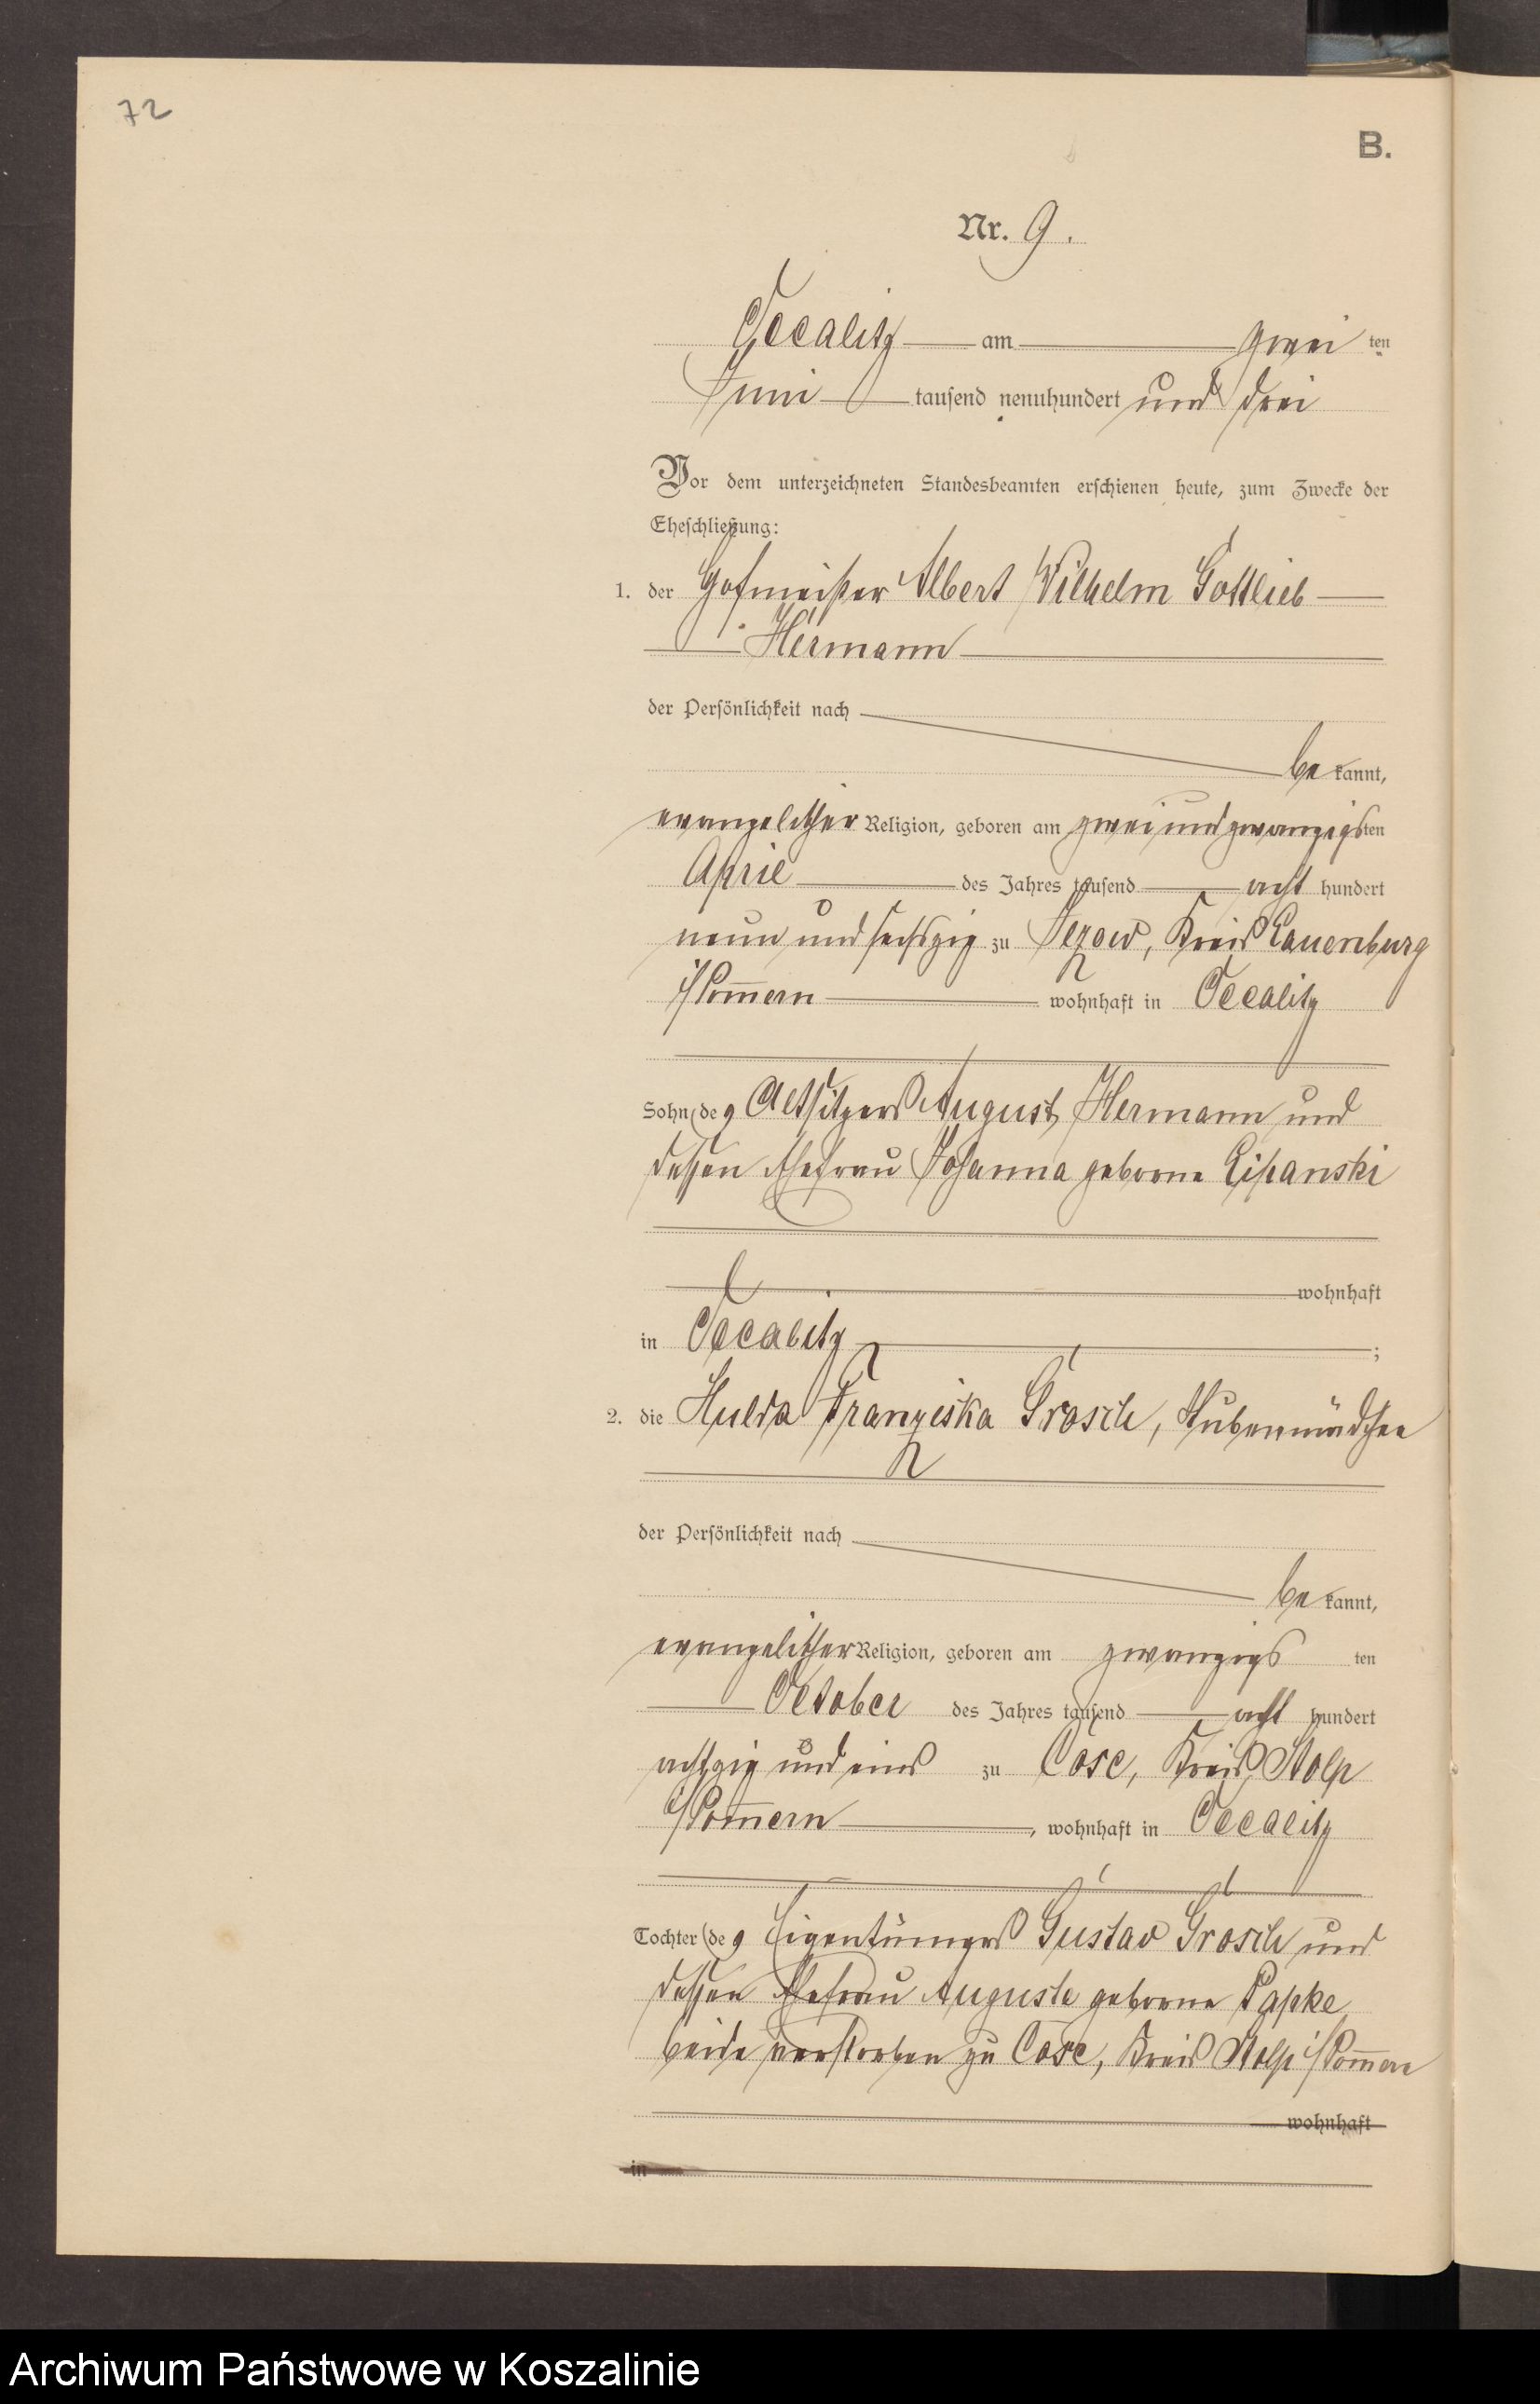 72
B.
Nr. 9.
Occalitz am zwei ten
Juni tausend neunhundert und drei
Vor dem unterzeichneten Standesbeamten erschienen heute, zum Zwecke der
Eheschließung:
1. der Hofmeister Albert Wilhelm Gottlieb
Hermann
der Persönlichkeit nach
be kannt,
evangelischer Religion, geboren am zwei und zwanzigsten
April des Jahres tausend acht hundert
neun und sechszig zu Jezow, Kreis Lauenburg
i/Pommern wohnhaft in Occalitz
Sohn des Altsitzers August Hermann und
dessen Ehefrau Johanna geborne Lipanski
wohnhaft
in Occalitz ;
2. die Hulda Franziska Grosch, Stubenmädchen
der Persönlichkeit nach
be kannt,
evangelischer Religion, geboren am zwanzigs ten
October des Jahres tausend acht hundert
achtzig und eins zu Cose, Kreis Stolp
i/Pommern , wohnhaft in Occalitz
Tochter des Eigentümers Gustav Grosch und
dessen Ehefrau Auguste geborne Papke
beide verstorben zu Cose, Kreis Stolp i/Pommern
wohnhaft
in
Archiwum Państwowe w Koszalinie